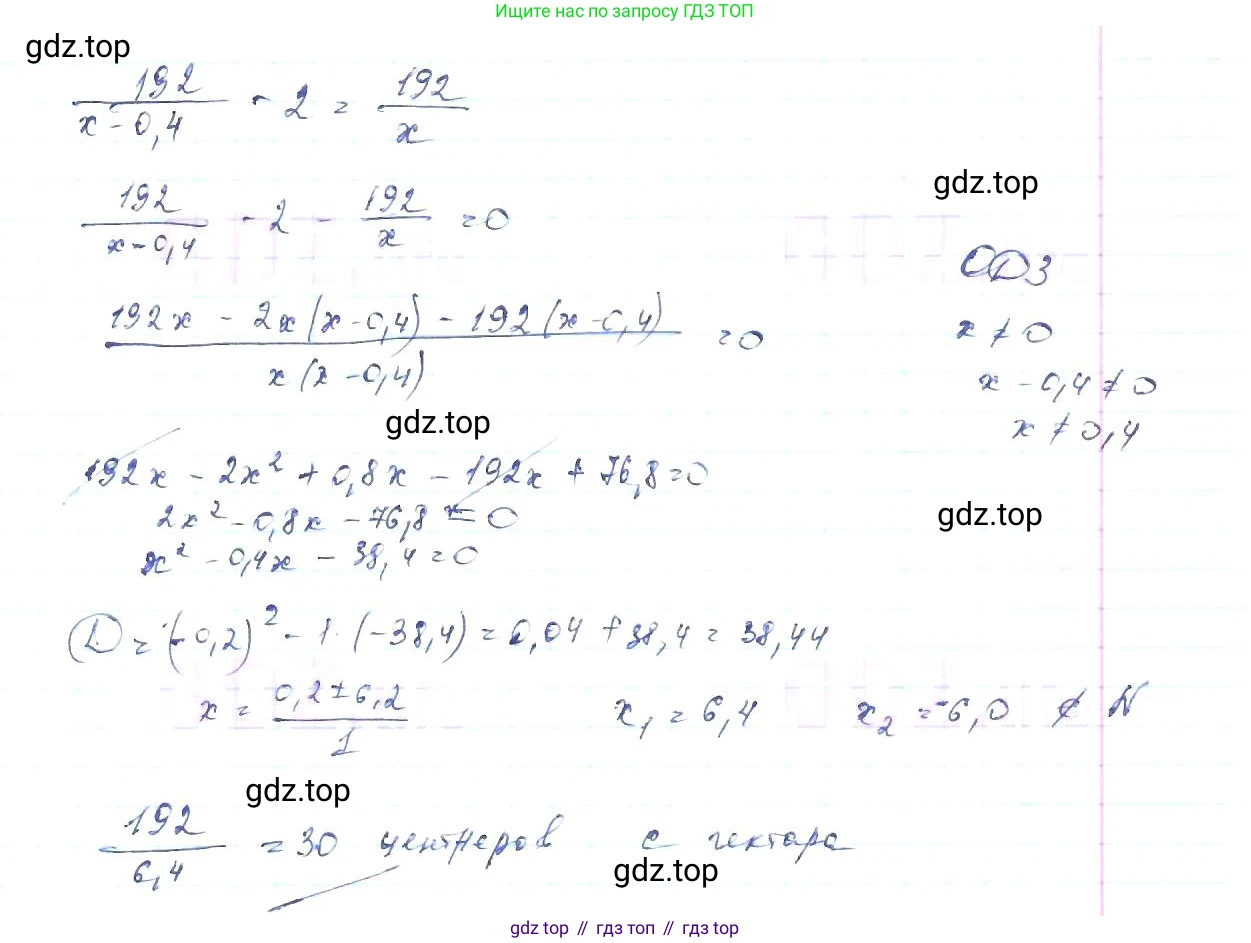 Ищите нас по запросу ГДЗ ТОП
gdz.top
192/(x-0,4) - 2 = 192/x
192/(x-0,4) - 2 - 192/x = 0
gdz.top
ОДЗ
(192x - 2x(x-0,4) - 192(x-0,4))/(x(x-0,4)) = 0
x ≠ 0
x - 0,4 ≠ 0
x ≠ 0,4
gdz.top
192x - 2x² + 0,8x - 192x + 76,8 = 0
2x² - 0,8x - 76,8 = 0
gdz.top
x² - 0,4x - 38,4 = 0
D = (-0,2)² - 1·(-38,4) = 0,04 + 38,4 = 38,44
x = (0,2 ± 6,2)/1 x₁ = 6,4 x₂ = -6,0 ∉ N
gdz.top
192/6,4 = 30 центнеров с гектара
gdz.top
gdz top // гдз топ // gdz top